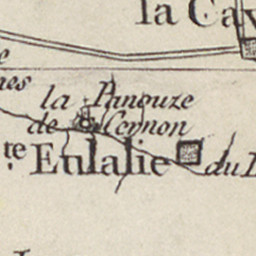 la Cav
e
nes
la Panouze
de Cernon
te Eulalie du L